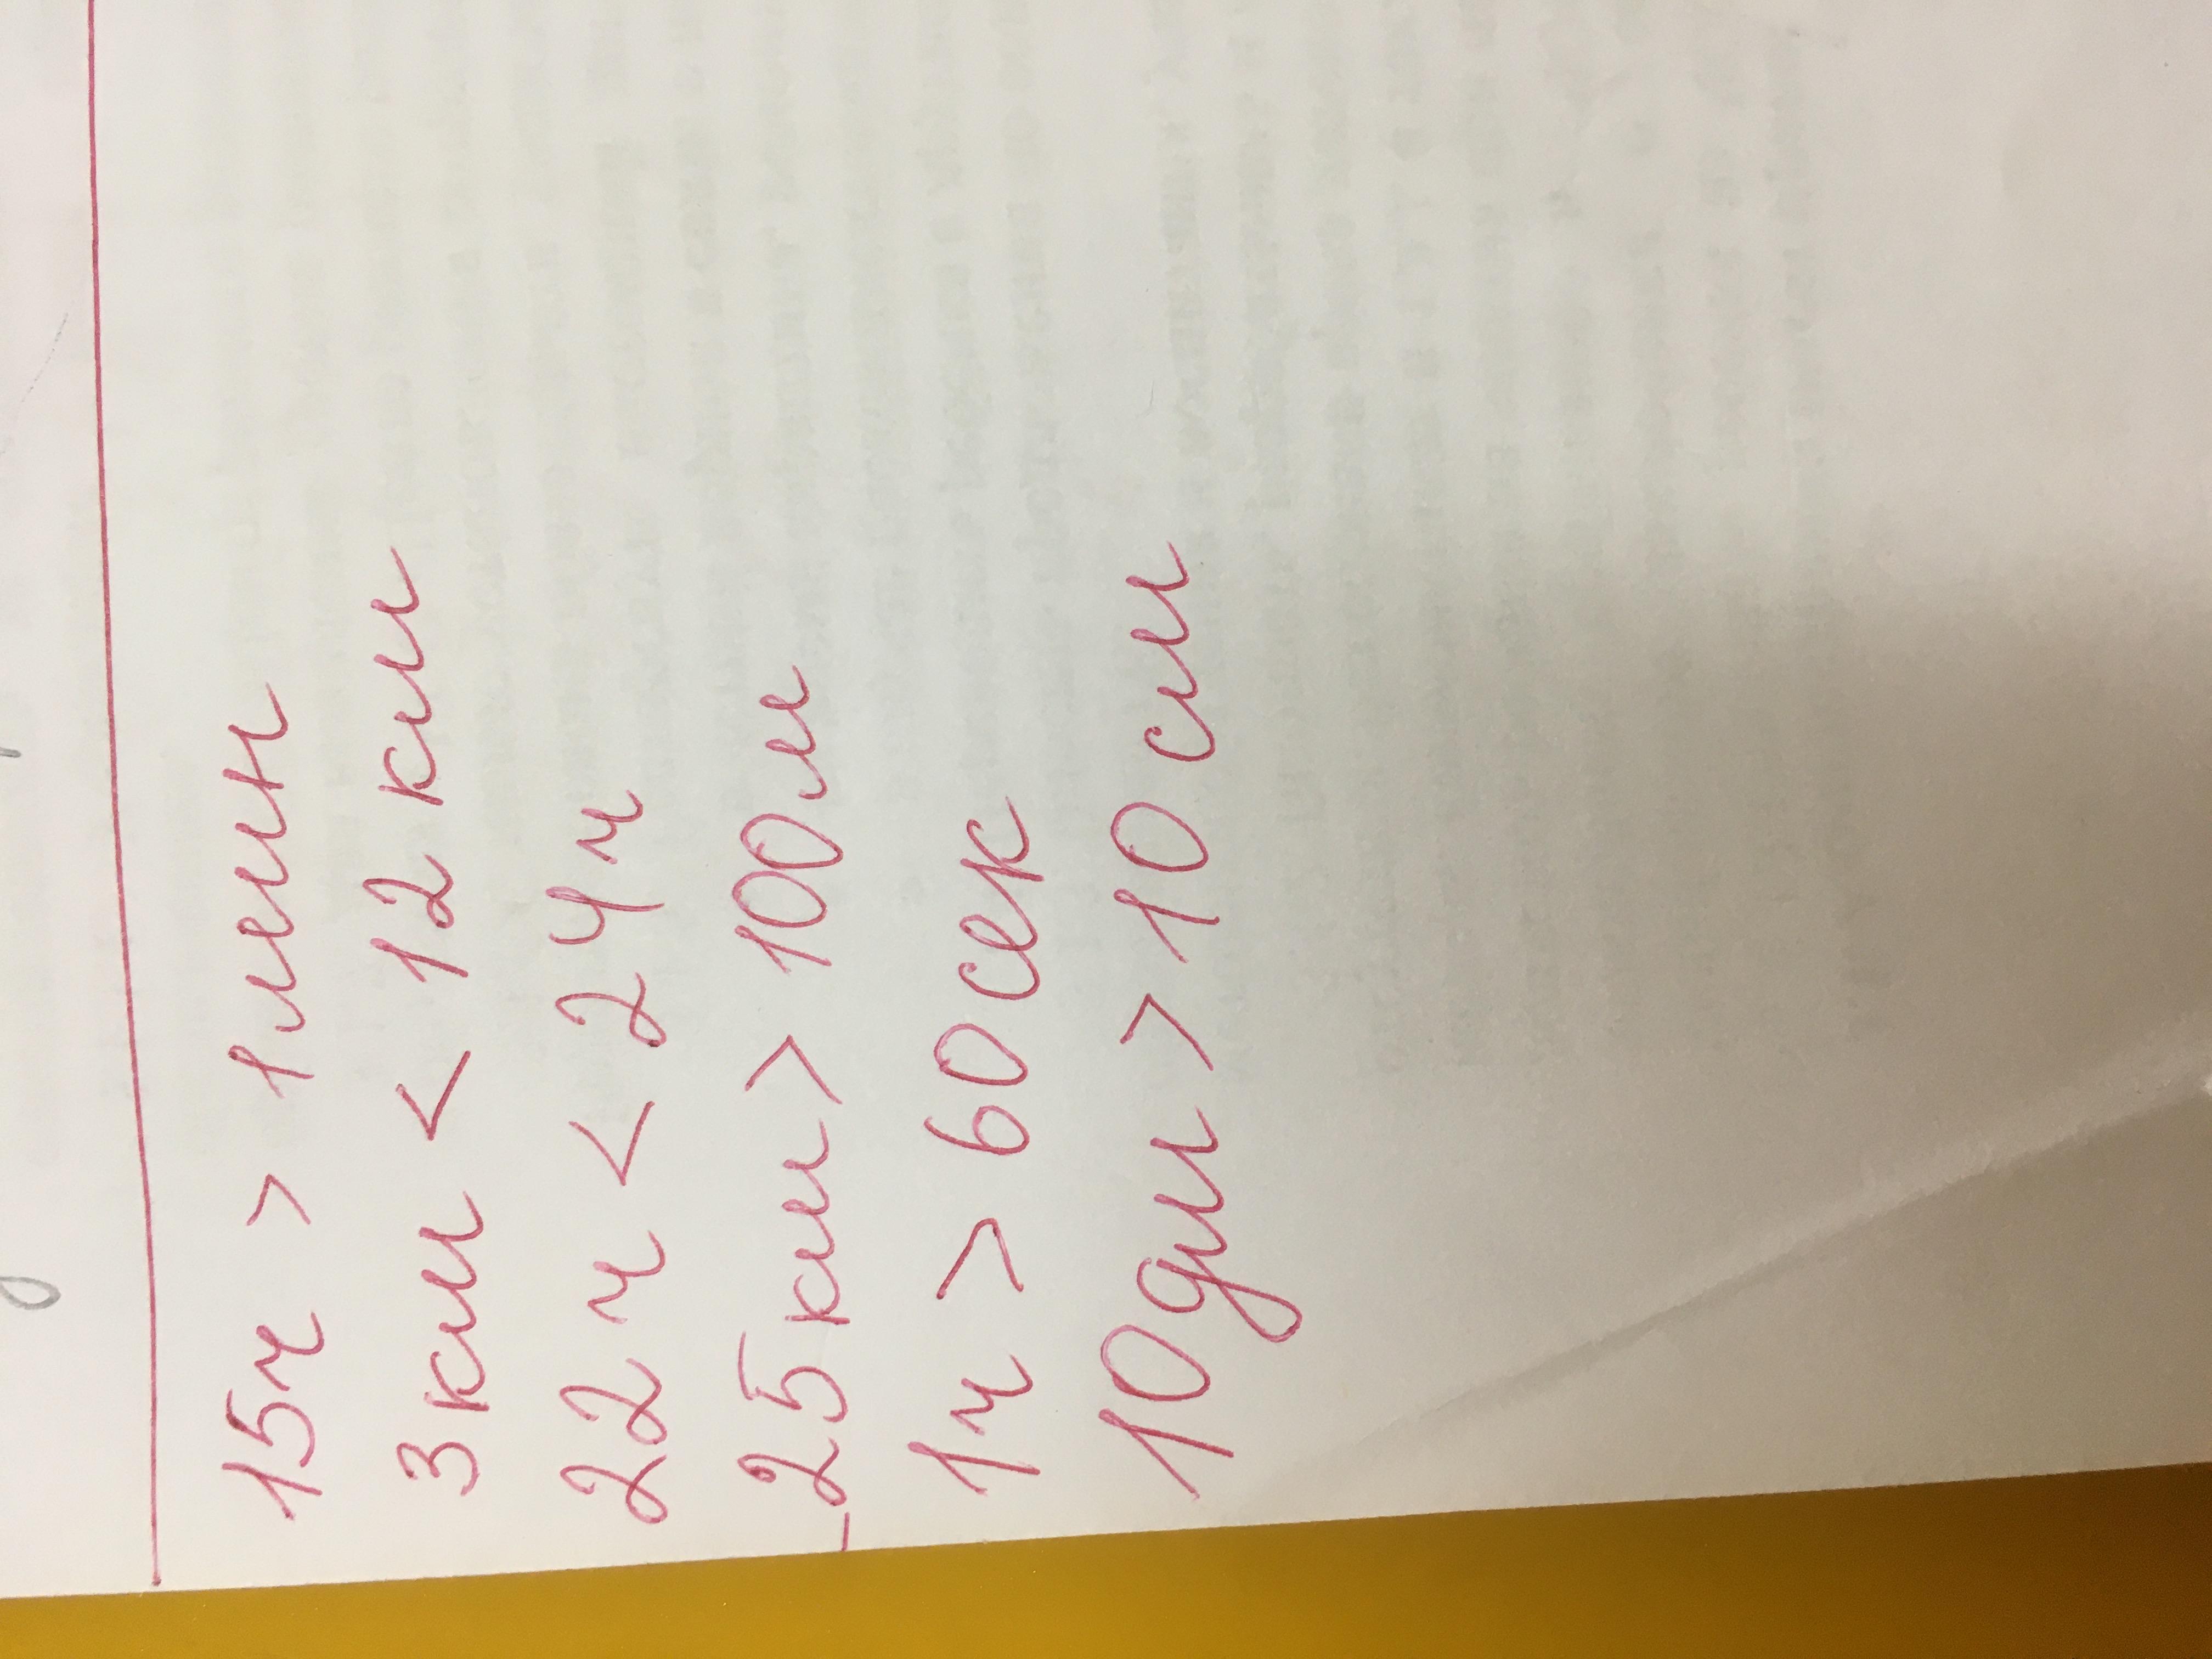 15ч > 1мин
3км < 12 км
22ч < 24ч
25км > 100м
1ч > 60сек
10дм > 10 см